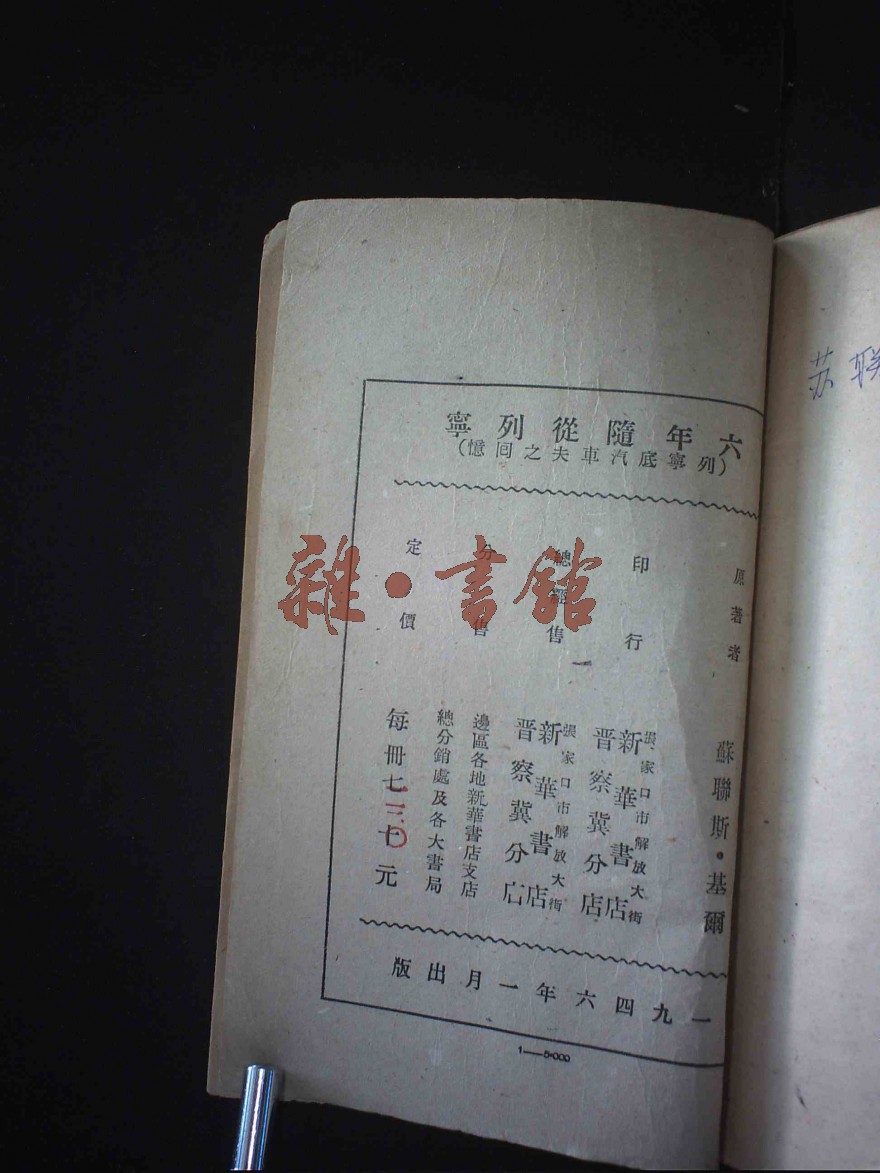 六年隨從列寧
(列寧底汽車夫之回憶)
原著者 蘇聯斯·基爾
印行 新華書店晋察冀分店
張家口市解放大街
總經售 新華書店晋察冀分店
張家口市解放大街
分售 邊區各地新華書店支店
總分銷處及各大書局
定價 每冊七十元
一三〇
一九四六年一月出版
1—5000
苏联
雜·書館